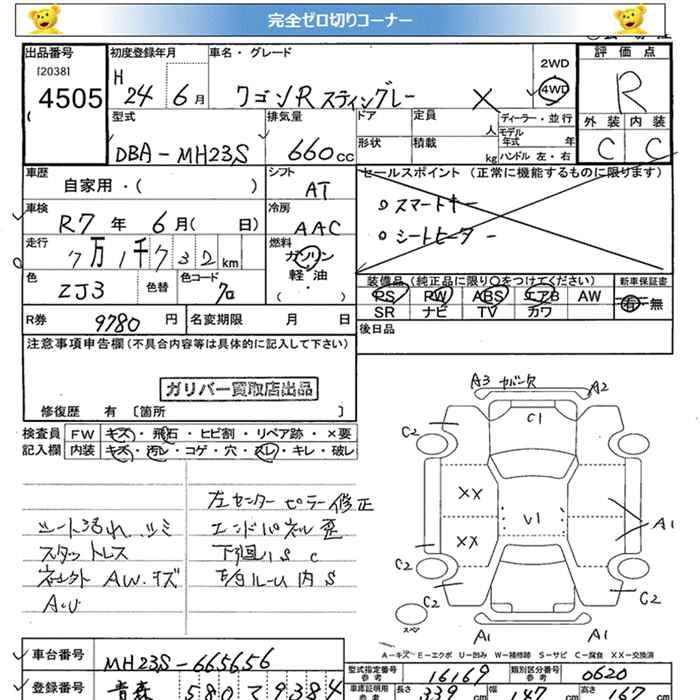 完全ゼロ切りコーナー
出品番号 初度登録年月 車名・グレード 2WD 評価点
[2038] H 24 6月 ワゴンR スティングレー 4WD R
4505
型式 排気量 ドア 定員 人 ディーラー・並行 外装 内装
DBA-MH23S 660cc 形状 積載 kg モデル年式 年 ハンドル 左・右 C C
車歴 シフト セールスポイント (正常に機能するものに限ります)
自家用・( ) AT
車検 冷房 スマートキー
R7年 6月( 日) AAC シートヒーター
走行 燃料
7万1千732km ガソリン
軽・油
色 色替 色コード 装備品(純正品に限り○をつけてください) 新車保証書
ZJ3 クロ ( ・ ) PS PW ABS エアB AW 有・無
SR ナビ TV カワ
R券 9780円 名変期限 月 日 後日品
注意事項申告欄(不具合内容等は具体的に記入して下さい)
ガリバー買取店出品
修復歴 有 〔箇所 〕
検査員 FW キズ・飛石・ヒビ割・リペア跡・×要
記入欄 内装 キズ・汚レ・コゲ・穴・スレ・キレ・破レ
左センターピラー修正
シート汚れ、シミ エンドパネル歪
スタットレス 下廻りS C
AW キズ 内S
A3 カバー欠 A2
C1
C2 C2
XX V1 A1
XX
C2 C2
C2
スペア A1 A1
A-キズ E-エクボ U-凹み W-補修跡 S-サビ C-腐食 XX-交換済
車台番号 MH23S-665656 型式指定番号 参考 16169 類別区分番号 参考 0620
登録番号 青森 580 て 9384 車庫証明用 参考 長さ 339cm 幅 147cm 高さ 167cm